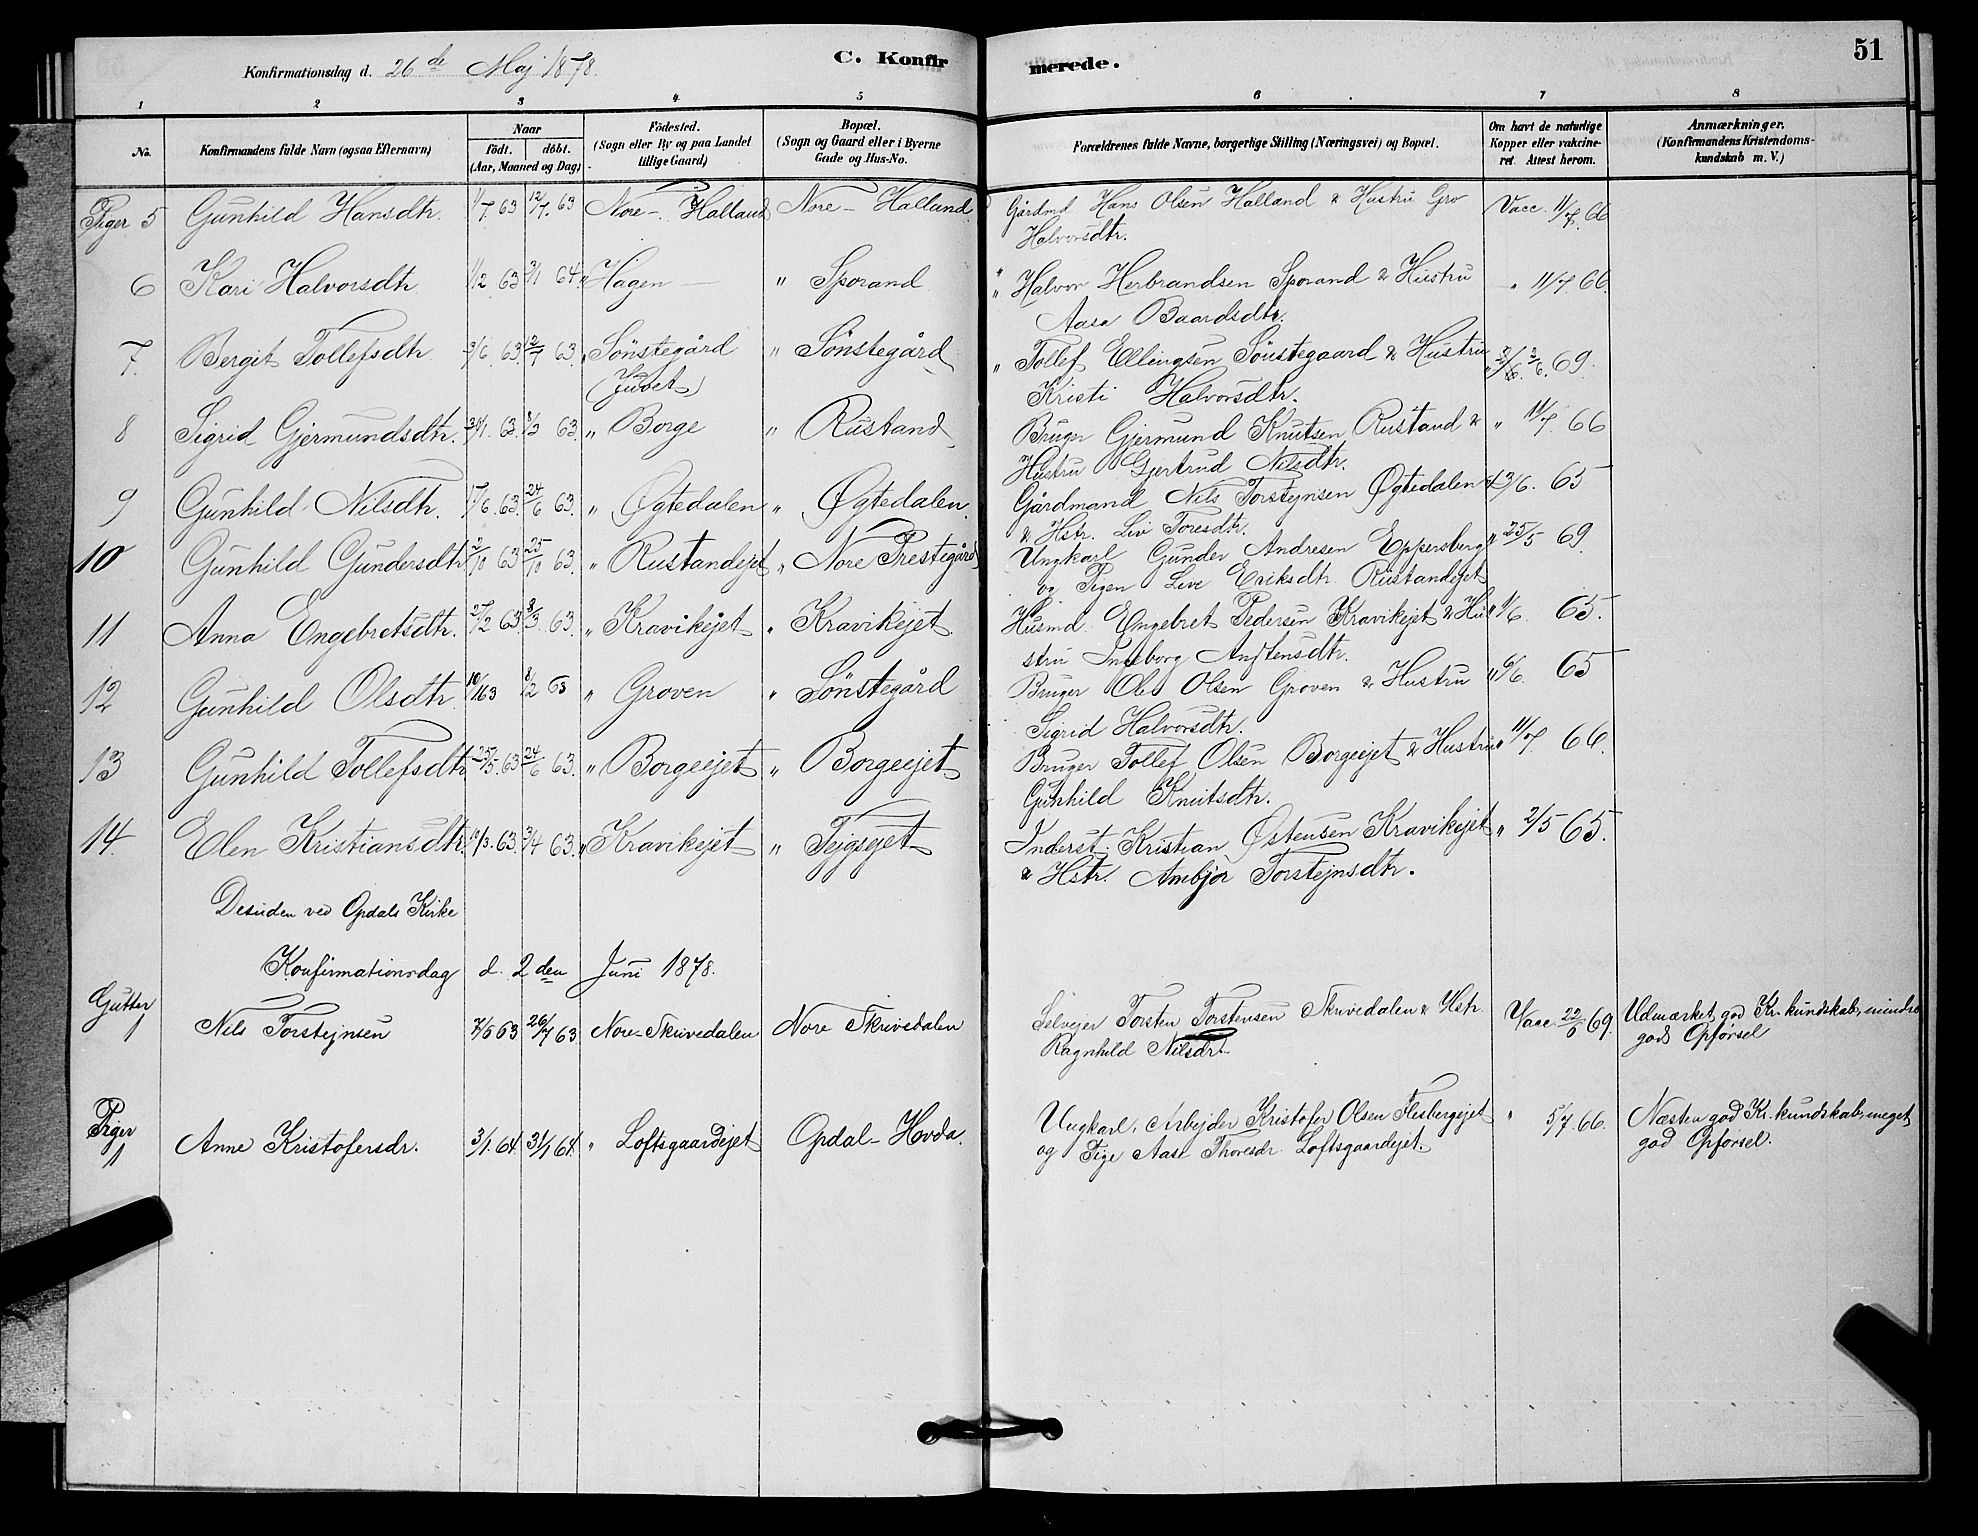 Konfirmationsdag d. 26de Maj 1878.
C. Konfirmerede.
51
1 2 3 4 5 6 7 8
No. Konfirmandens fulde Navn (ogsaa Efternavn) Naar født. døbt. (Aar, Maaned og Dag) Fødested. (Sogn eller By og paa Landet tillige Gaard) Bopæl. (Sogn og Gaard eller i Byerne Gade og Hus-No. Forældrenes fulde Navne, borgerlige Stilling (Næringsvei) og Bopæl. Om havt de naturlige Kopper eller vakcineret. Attest herom. Anmærkninger. (Konfirmandens Kristendomskundskab m. V.)
Piger 5 Gunhild Hansdtr. 1/7. 63 12/7. 63 Nore - Halland Nore - Halland Gårdmd Hans Olsen Halland & Hustru Gro Vacc. 11/7. 66
Halvorsdtr.
6 Kari Halvorsdtr 1/12 63 3/1 64 " Hagen " Sporand " Halvor Herbrandsen Sporand & Hustru " 11/7 66.
Aase Baardsdtr.
7. Bergit Tollefsdtr 3/6. 63 12/7 63. " Sönstegård " Sönstegård " Tollef Ellingsen Sönstegaard & Hustru " 2/6. 69.
(Juvet) Kristi Halvorsdtr.
8 Sigrid Gjermundsdtr. 63. 63. " Borge " Rustand Bruger Gjermund Knutsen Rustand & " 11/7. 66
Hustru Gjertrud Nilsdtr.
9 Gunhild Nilsdtr. 17/6. 63. 24/6 63. " Øgtedalen " Øgtedalen. Gårdmand Nils Torstejnsen Øgtedalen 3/6. 65
& Hstr. Liv Toresdtr.
10 Gunhild Gundersdtr 2/10 63 25/10 63. " Rustandejet " Nore Prestegård Ungkarl Gunder Andresen Eppersberg " 25/5 69.
og Pigen Live Eriksdtr. Rustandejet
11 Anna Engebretsdtr. 27/2 63 8/3. 63. " Kravikejet " Kravikejet. Husmd. Engebret Pedersen Kravikejet & Hu " 1/6. 65.
stru Ingeborg
12 Gunhild Olsdtr. 10/1 63 8/2 63 " Groven " Sönstegård Bruger Ole Olsen Groven & Hustru " 6/6. 65
Sigrid Halvorsdtr.
13 Gunhild Tollefsdtr 25/5. 63 24/6 63. " Borgeejet " Borgeejet Bruger Tollef Olsen Borgeejet & Hustru " 11/7. 66.
Gunhild Knutsdtr.
14. Elen Kristiansdtr. 63. 3/4 63. " Kravikejet " Tejgsejet Inderst. Kristian Østensen Kravikejet " 2/5 65.
& Hstr. Ambjør Torstejnsdtr.
Desuden ved Opdals Kirke
Konfirmationsdag d. 2den Juni 1878.
Gutter
1 Nils Torstejnsen 7/6 63 26/7 63 Nore-Skrivedalen Nore Skrivedalen Selvejer Torsten Torstensen Skrivedalen & Hstr. Vacc 22/6 69. Udmærket god Kr. kundskab, mindre
Ragnhild Nilsdr. god Opførsel
Piger
1 Anne Kristofersdr. 3/1. 64. 31/1 64. " Loftsgaardejet Opdal - Hovda. Ungkarl, Arbejder Kristofer Olsen Flesbergejet " 5/7. 66. Næsten god Kr. kundskab, meget
og Pige Aase Thoresdr. Loftsgaardejet. god Opførsel.